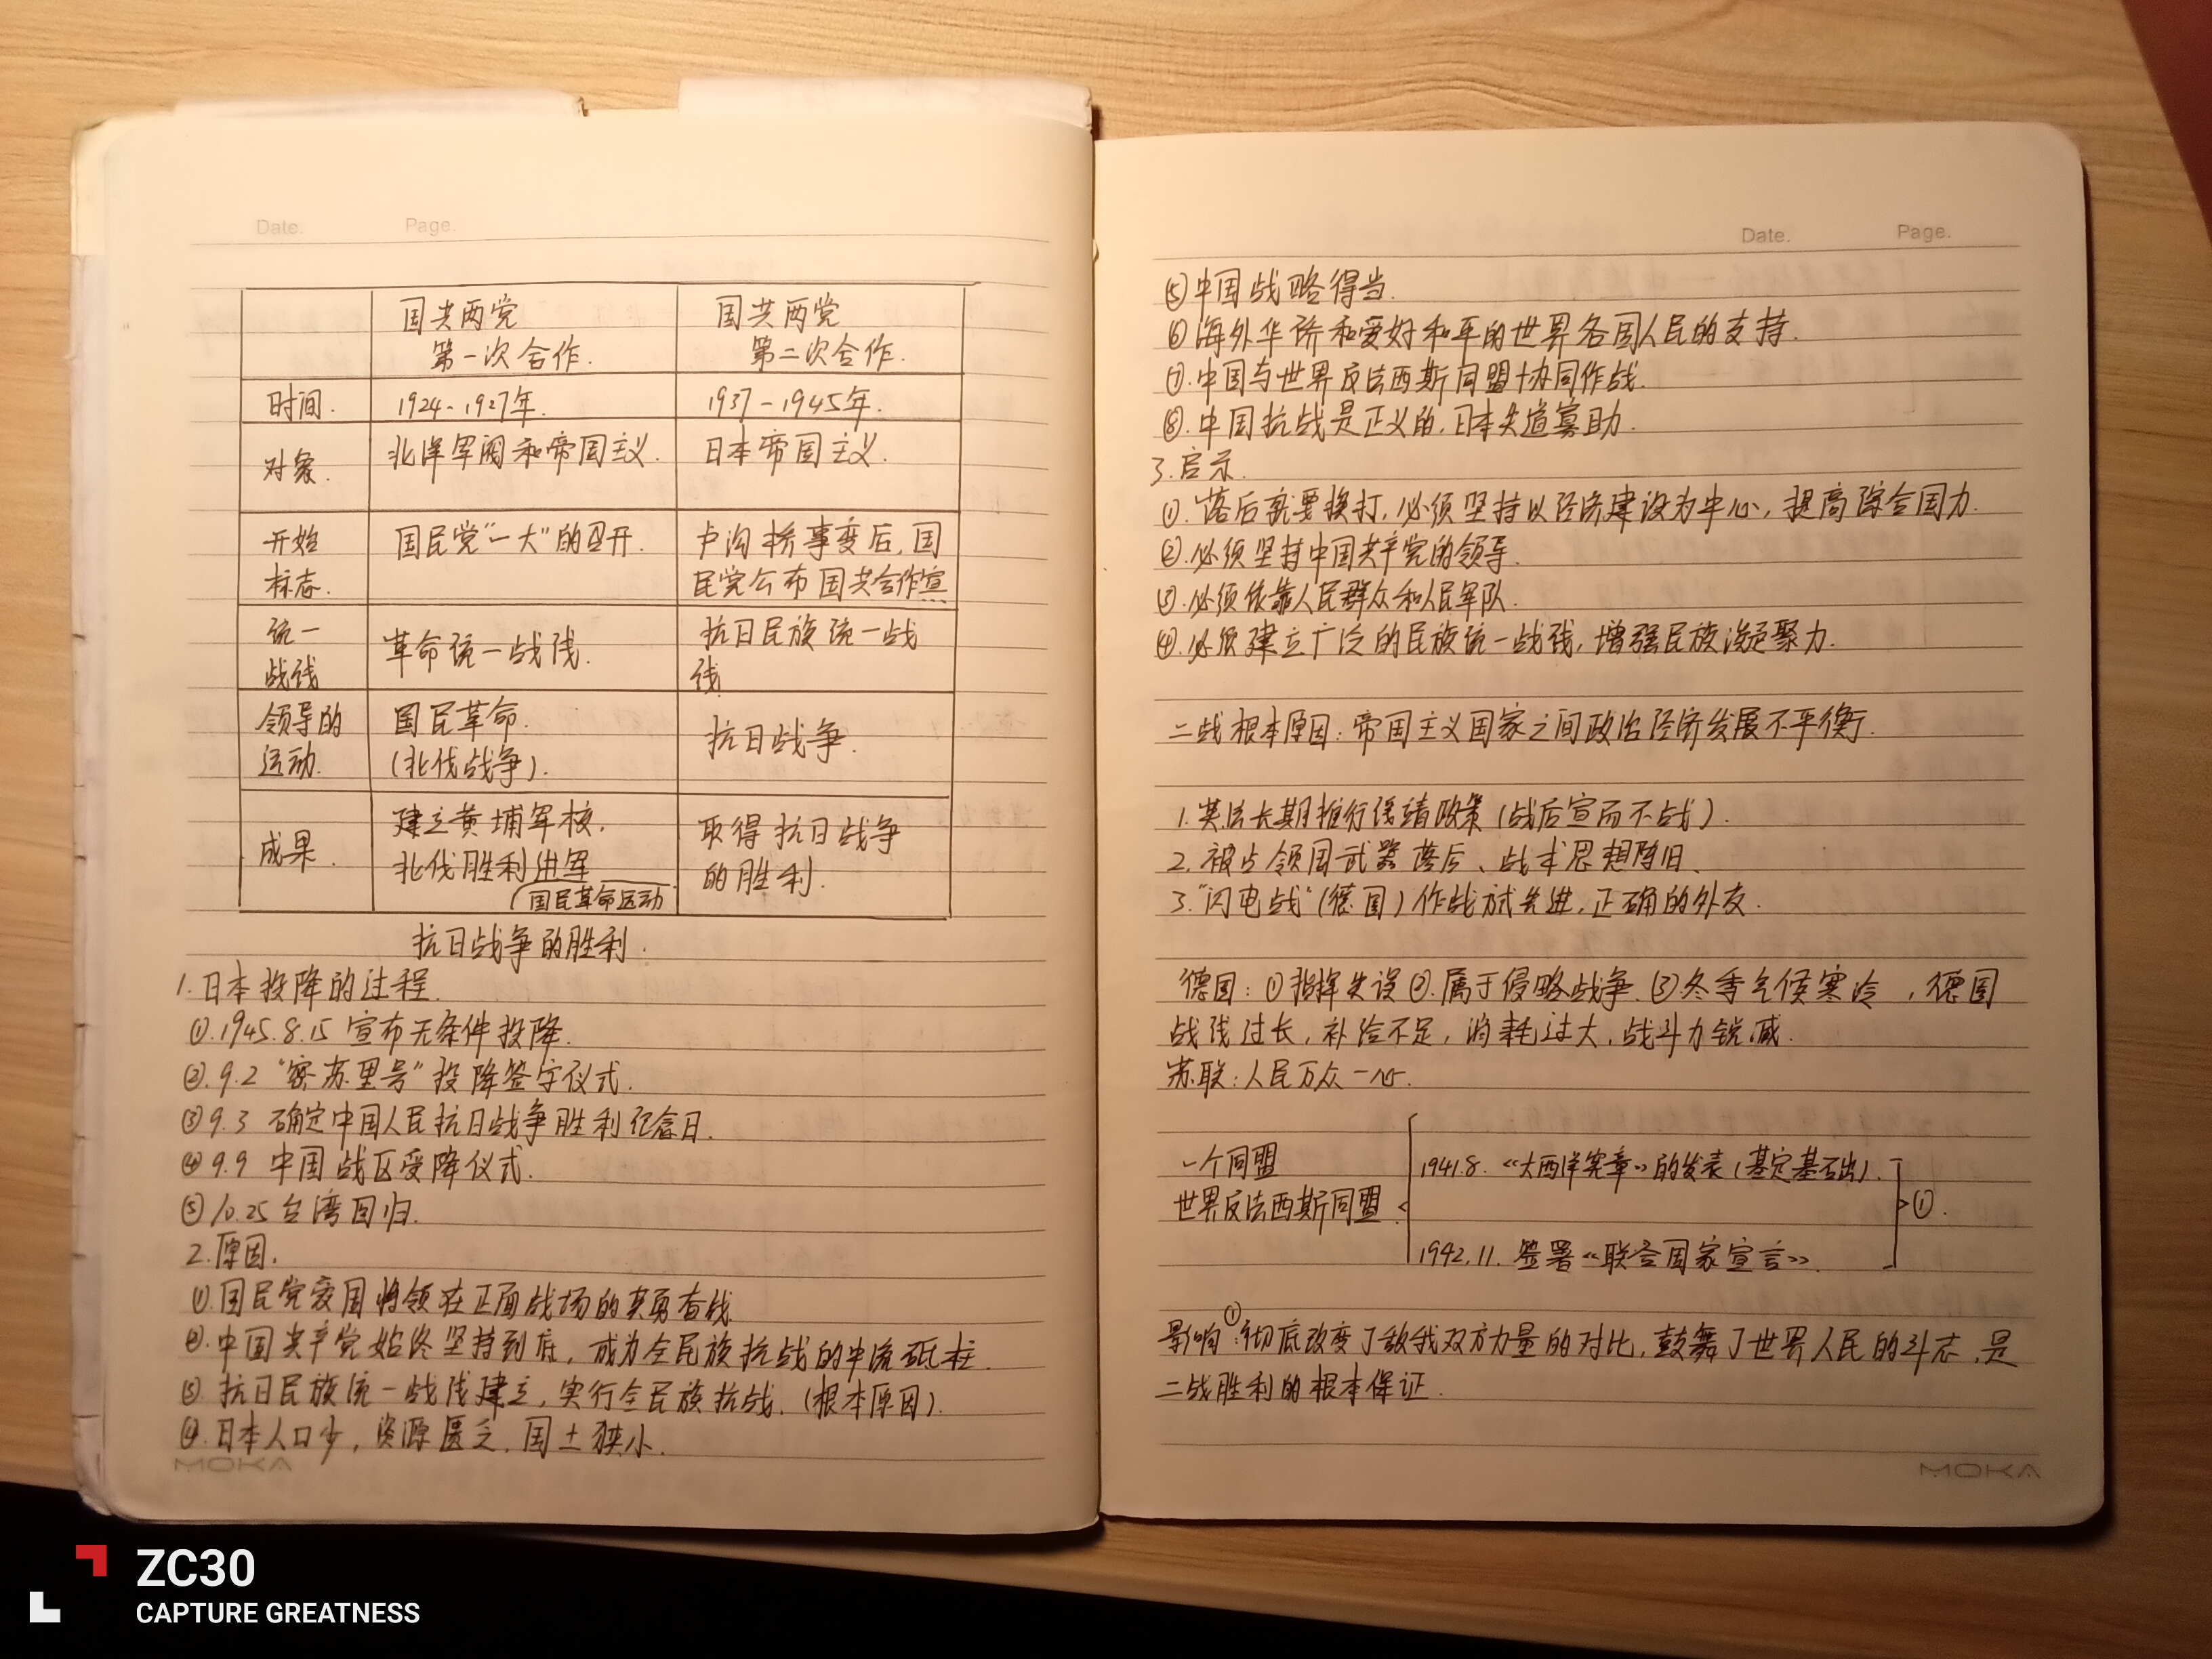 Date. Page.
国共两党 第一次合作. 国共两党 第二次合作.
时间. 1924-1927年. 1937-1945年.
对象. 北洋军阀和帝国主义. 日本帝国主义.
开始标志. 国民党“一大”的召开. 卢沟桥事变后,国民党公布国共合作宣
统一战线 革命统一战线. 抗日民族统一战线
领导的运动. 国民革命.(北伐战争). 抗日战争.
成果. 建立黄埔军校, 北伐胜利进军 取得抗日战争的胜利.
(国民革命运动
抗日战争的胜利.
1.日本投降的过程.
①.1945.8.15 宣布无条件投降.
②.9.2 “密苏里号”投降签字仪式.
③9.3 确定中国人民抗日战争胜利纪念日.
④9.9 中国战区受降仪式.
⑤10.25 台湾回归.
2.原因.
①.国民党爱国将领在正面战场的英勇奋战
②.中国共产党始终坚持到底,成为全民族抗战的中流砥柱.
③.抗日民族统一战线建立,实行全民族抗战.(根本原因).
④.日本人口少,资源匮乏.国土狭小.
MOKA
Date. Page.
⑤中国战略得当.
⑥海外华侨和爱好和平的世界各国人民的支持.
⑦.中国与世界反法西斯同盟协同作战.
⑧.中国抗战是正义的,日本失道寡助.
3.启示.
①.落后就要挨打,必须坚持以经济建设为中心,提高综合国力.
②.必须坚持中国共产党的领导.
③.必须依靠人民群众和人民军队.
④.必须建立广泛的民族统一战线,增强民族凝聚力.
二战根本原因:帝国主义国家之间政治经济发展不平衡.
1.英法长期推行绥靖政策(战后宣而不战).
2.被占领国武器落后、战术思想陈旧.
3.“闪电战”(德国)作战方式先进,正确的外交.
德国:①指挥失误②.属于侵略战争.③冬季气候寒冷,德国
战线过长,补给不足,消耗过大,战斗力锐减.
苏联:人民万众一心.
一个同盟
世界反法西斯同盟
1941.8.《大西洋宪章》的发表(基定基石出).
①.
1942.11.签署《联合国家宣言》.
影响①:彻底改变了敌我双方力量的对比,鼓舞了世界人民的斗志,是
二战胜利的根本保证.
MOKA
ZC30
CAPTURE GREATNESS